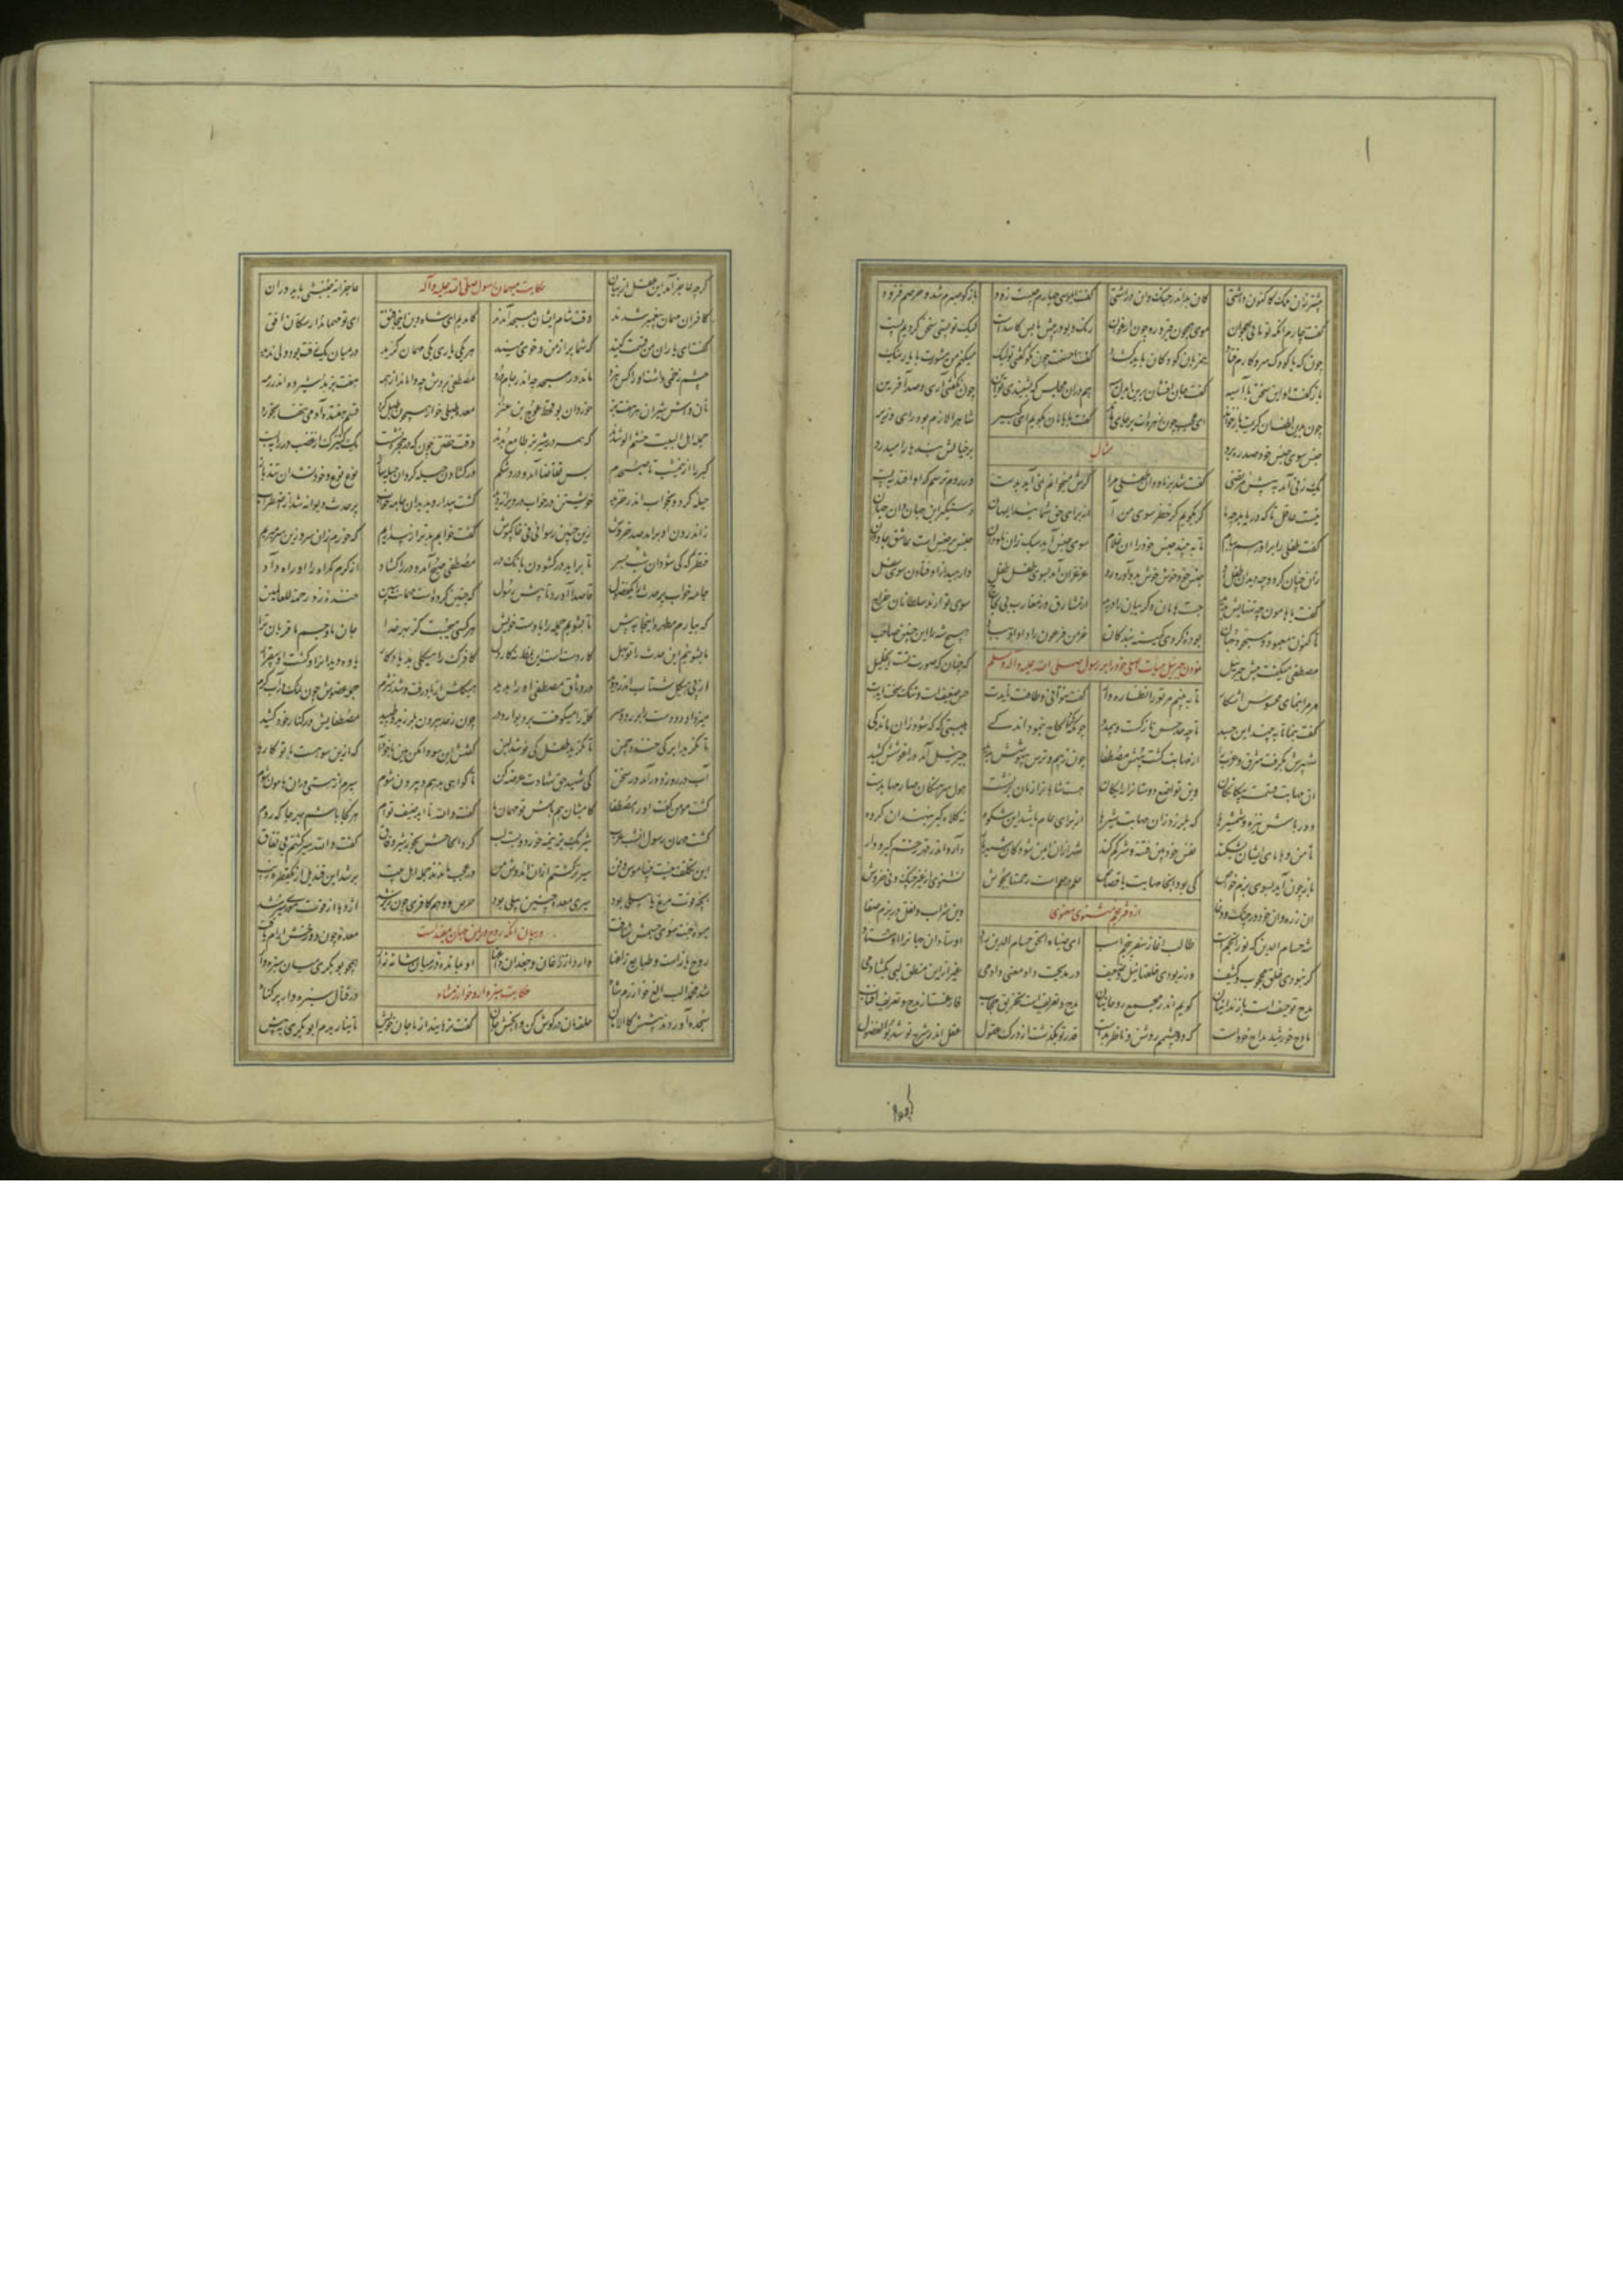 بیشتر زان ملک کاکنون داشتی کان بد اندر جنگ و این در آشتی گفت ای موسی چهارم چیست زود بازگو صبرم شد و حرصم فزود
گفت چارم آنکه تو مانی جوان موی همچون قیر و رخ چون ارغوان رنگ و بو در پیش ما بس کاسدست لیک تو پستی سخن کردیم پست
چون که با کودک سر و کارم فتاد هم زبان کودکان باید گشاد گفت احسنت نکو گفتی ولیک میکنم من مشورت با یار نیک
بازگفت او این سخن با آسیه گفت جان افشان برین ای دل سیه هم در آن مجلس که بشنیدی تو این چون نگفتی آری و صد آفرین
چون بدین لطف آن کریمت بازخواند ای عجب چون زهره‌ات بر جای ماند گفت با هامان بگویم ای ستیر شاه را لازم بود رای وزیر
جنس سوی جنس خود صد ره پرد بر خیالش بندها را میدرد
مثال
یک زنی آمد به پیش مرتضی گفت شد بر ناودان طفلی مرا گرش میخوانم نمی آید بدست ور روم ترسم که او افتد به پست
نیست عاقل تا که دریابد چو ما گر بگویم کز خطر سوی من آ از برای حق شمایید ای مهان دستگیر این جهان و آن جهان
گفت طفلی را برآور هم ببام تا ببیند جنس خود را آن غلام سوی جنس آید سبک زان ناودان جنس بر جنس است عاشق جاودان
زن چنان کرد و چو دید آن طفل او جنس خود خوش خوش بدو آورد رو غژغژان آمد بسوی طفل طفل وارهید از اوفتادن سوی سفل
گفت با هامون چو تنهایش بدید جست هامان و گریبان را درید از مشارق وز مغارب بی لجاج سوی تو آرند سلطانان خراج
تا کنون معبود و مسجود جهان بوده گردی کمینه بندگان خرمن فرعون را داد او هیچ شه را این چنین صاحب
نمودن جبرئیل هیات اصلی خود را بر رسول صلی الله علیه و آله وسلم
مصطفی میگفت پیش جبرئیل که چنان که صورت تست ای خلیل
مر مرا بنمای محسوس آشکار تا ببینم مر تو را نظاره وار گفت نتوانی و طاقت نبودت حس ضعیفست و تنک سخت آیدت
گفت بنما تا ببیند این جسد تا چه حد حس نازکست و بی مدد چونکه کرد الحاح بنمود اندکی هیبتی که که شود زان مندکی
شهپری بگرفت شرق و غرب را از مهابت گشت بیهش مصطفا چون ز بیم و ترس بیهوشش بدید جبرئیل آمد در آغوشش کشید
آن مهابت قسمت بیگانگان وین تواضع دوستان را رایگان هست شاهان را زمان برنشست هول سرهنگان و صارمها بدست
دور باش و نیزه و شمشیرها که بلرزند از مهابت شیرها از برای عام باشد این شکوه تا کلاه کبر ننهند آن گروه
تا من و ماهای ایشان بشکند نفس خودبین فتنه و شر کم کند شهر از آن ایمن شود کان شهریار دارد اندر قهر زخم گیر و دار
باز چون آید بسوی بزم خاص کی بود آنجا مهابت یا قصاص حلم در حلم است رحمتها بجوش نشنوی از غیر چنگ و نی خروش
آن زره وان خود در جنگ و وغا وین شراب و نقل در بزم صفا
از دفتر پنجم مثنوی معنوی
شه حسام الدین که نور انجمست طالب آغاز سفر پنجمست ای ضیاء الحق حسام الدین راد اوستادان صفا را اوستاد
گر نبودی خلق محجوب و کثیف ور نبودی حلقها تنگ و ضعیف در مدیحت داد معنی دادمی غیر ازین منطق لبی بگشادمی
مدح تو حیفست با زندانیان گویم اندر مجمع روحانیان مدح و تعریفست تخریق حجاب فارغست از مدح و تعریف آفتاب
مادح خورشید مداح خودست که دو چشمم روشن و نامرمدست قدر تو بگذشت از درک عقول عقل اندر شرح تو شد بوالفضول
گرچه
گرچه عاجز آمد این عقل از بیان عاجزانه جنبشی باید در آن
حکایت مهمان رسول صلی الله علیه و آله
کافران مهمان پیغمبر شدند وقت شام ایشان بمسجد آمدند کامدیم ای شاه دین اینجا قنق ای تو مهماندار سکان افق
گفت ای یاران من قسمت کنید که شما پر از من و خوی منید هر یکی یاری یکی مهمان گزید در میان یک زفت بود و بی ندید
جسم ضخمی داشت او را کس نبرد ماند در مسجد چو اندر جام درد مصطفی بردش چو واماند از همه هفت بز بد شیرده اندر رمه
نان و آش و شیر آن هر هفت بز خورد آن بوقحط عوج بن غز معده طبلی خوار همچون طبل کرد قسم هفده آدمی تنها بخورد
جمله اهل البیت خشم آلو شدند که همه در شیر بز طامع بدند وقت خفتن چون که در حجره نشست یک کنیزک از غضب در را ببست
گبر را از نیمشب تا صبحدم بس تقاضا آمد و درد شکم در گشادن حیله کرد آن حیله ساز نوع نوع و خود نشد آن بند باز
حیله کرد و بخواب اندر خزید خویشتن در خواب در ویرانه دید گشت بیدار و بدید آن جامه خواب پر حدث دیوانه شد از اضطراب
ز اندرون او برآمد صد خروش زین چنین رسوائی بی خاک پوش گفت خوابم بدتر از بیداریم که خورم زان سو و زین سو میریم
منتظر که کی شود آن شب بسر تا برآید در گشودن بانگ در مصطفی صبح آمد و در را گشاد از کرم گمراه را او راه داد
جامه خواب پر حدث را یک فضول قاصدا آورد تا پیش رسول که چنین کردست مهمانت ببین خنده زد رحمة للعالمین
که بیار آن مطهره اینجا به پیش تا بشویم جمله را با دست خویش هر کسی میجست کز بهر خدا جان ما و جسم ما قربان ترا
ما بشوییم این حدث را تو بهل کار دستست این نمط نه کار دل کافرک را هیکلی بد یادگار یاوه دید آنرا و گشت او بیقرار
از پی هیکل شتاب اندر دوید در وثاق مصطفی او را بدید هیکلش از یاد رفت و شد ز شرم جمله عضوش چون
میزد او دو دست را بر رو و سر کله را میکوفت بر دیوار و در چون ز حد بیرون بلرزید و طپید مصطفایش در کنار خود کشید
تا نگرید ابر کی خندد چمن تا نگرید طفل کی نوشد لبن گفتش این سو که ازین سو هست با تو کارها
آب بر رو زد درآمد در سخن کای شهید حق شهادت عرضه کن تا گواهی بدهم و بیرون شوم سیرم از هستی در آن هامون شوم
گشت مومن گفت او را مصطفا کامشبان هم باش تو مهمان ما گفت والله تا ابد ضیف توام هر کجا باشم بهر جا که روم
گشت مهمان رسول آن شب عرب شیر یک بز نیمه خورد و بست لب کرد الحاحش بخور شیر و رقاق گفت والله سیر گشتم بی نفاق
این تکلف نیست نی ناموس و فن سیرتر گشتم از آن که دوش من در عجب ماندند جمله اهل بیت پر شد این قندیل از یک قطره زیت
آنچه قوت مرغ بابیلی بود سیری معده چنین پیلی بود حرص و وهم کافری اژدها از قوت موری سیر شد
میوه جنت سوی چشمش شتافت معده چون دوزخش آرام یافت
در بیان آنکه روح در این جهان
روح بازست و طبایع زاغها دارد از زاغان و جغدان داغها او بمانده در میانشان زار زار همچو بوبکری بسان سبزوار
حکایت سبزوار و خوارزمشاه
شد محمد الپ الغ خوارزم شاه در قتال سبزوار پرگناه
سجده آوردند پیشش کالامان حلقمان در گوش کن وابخش جان گفت نرهانید از ما جان خویش تا نیاریدم ابوبکری به پیش